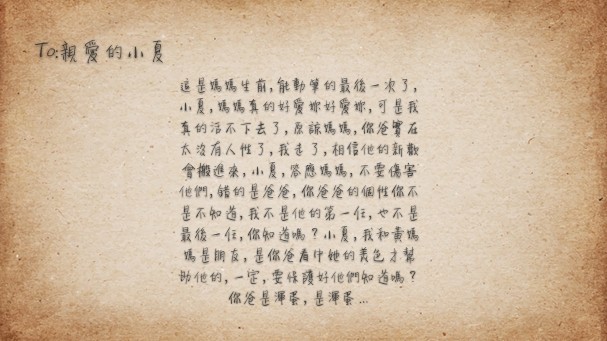 To:親愛的小夏
這是媽媽生前,能動筆的最後一次了,
小夏,媽媽真的好愛妳好愛妳,可是我
真的活不下去了,原諒媽媽,你爸實在
太沒有人性了,我走了,相信他的新歡
會搬進來,小夏,答應媽媽,不要傷害
他們,錯的是爸爸,你爸爸的個性你不
是不知道,我不是他的第一任,也不是
最後一任,你知道嗎?小夏,我和黃媽
媽是朋友,是你爸看中她的美色才幫
助他的,一定,要保護好他們知道嗎?
你爸是渾蛋,是渾蛋...